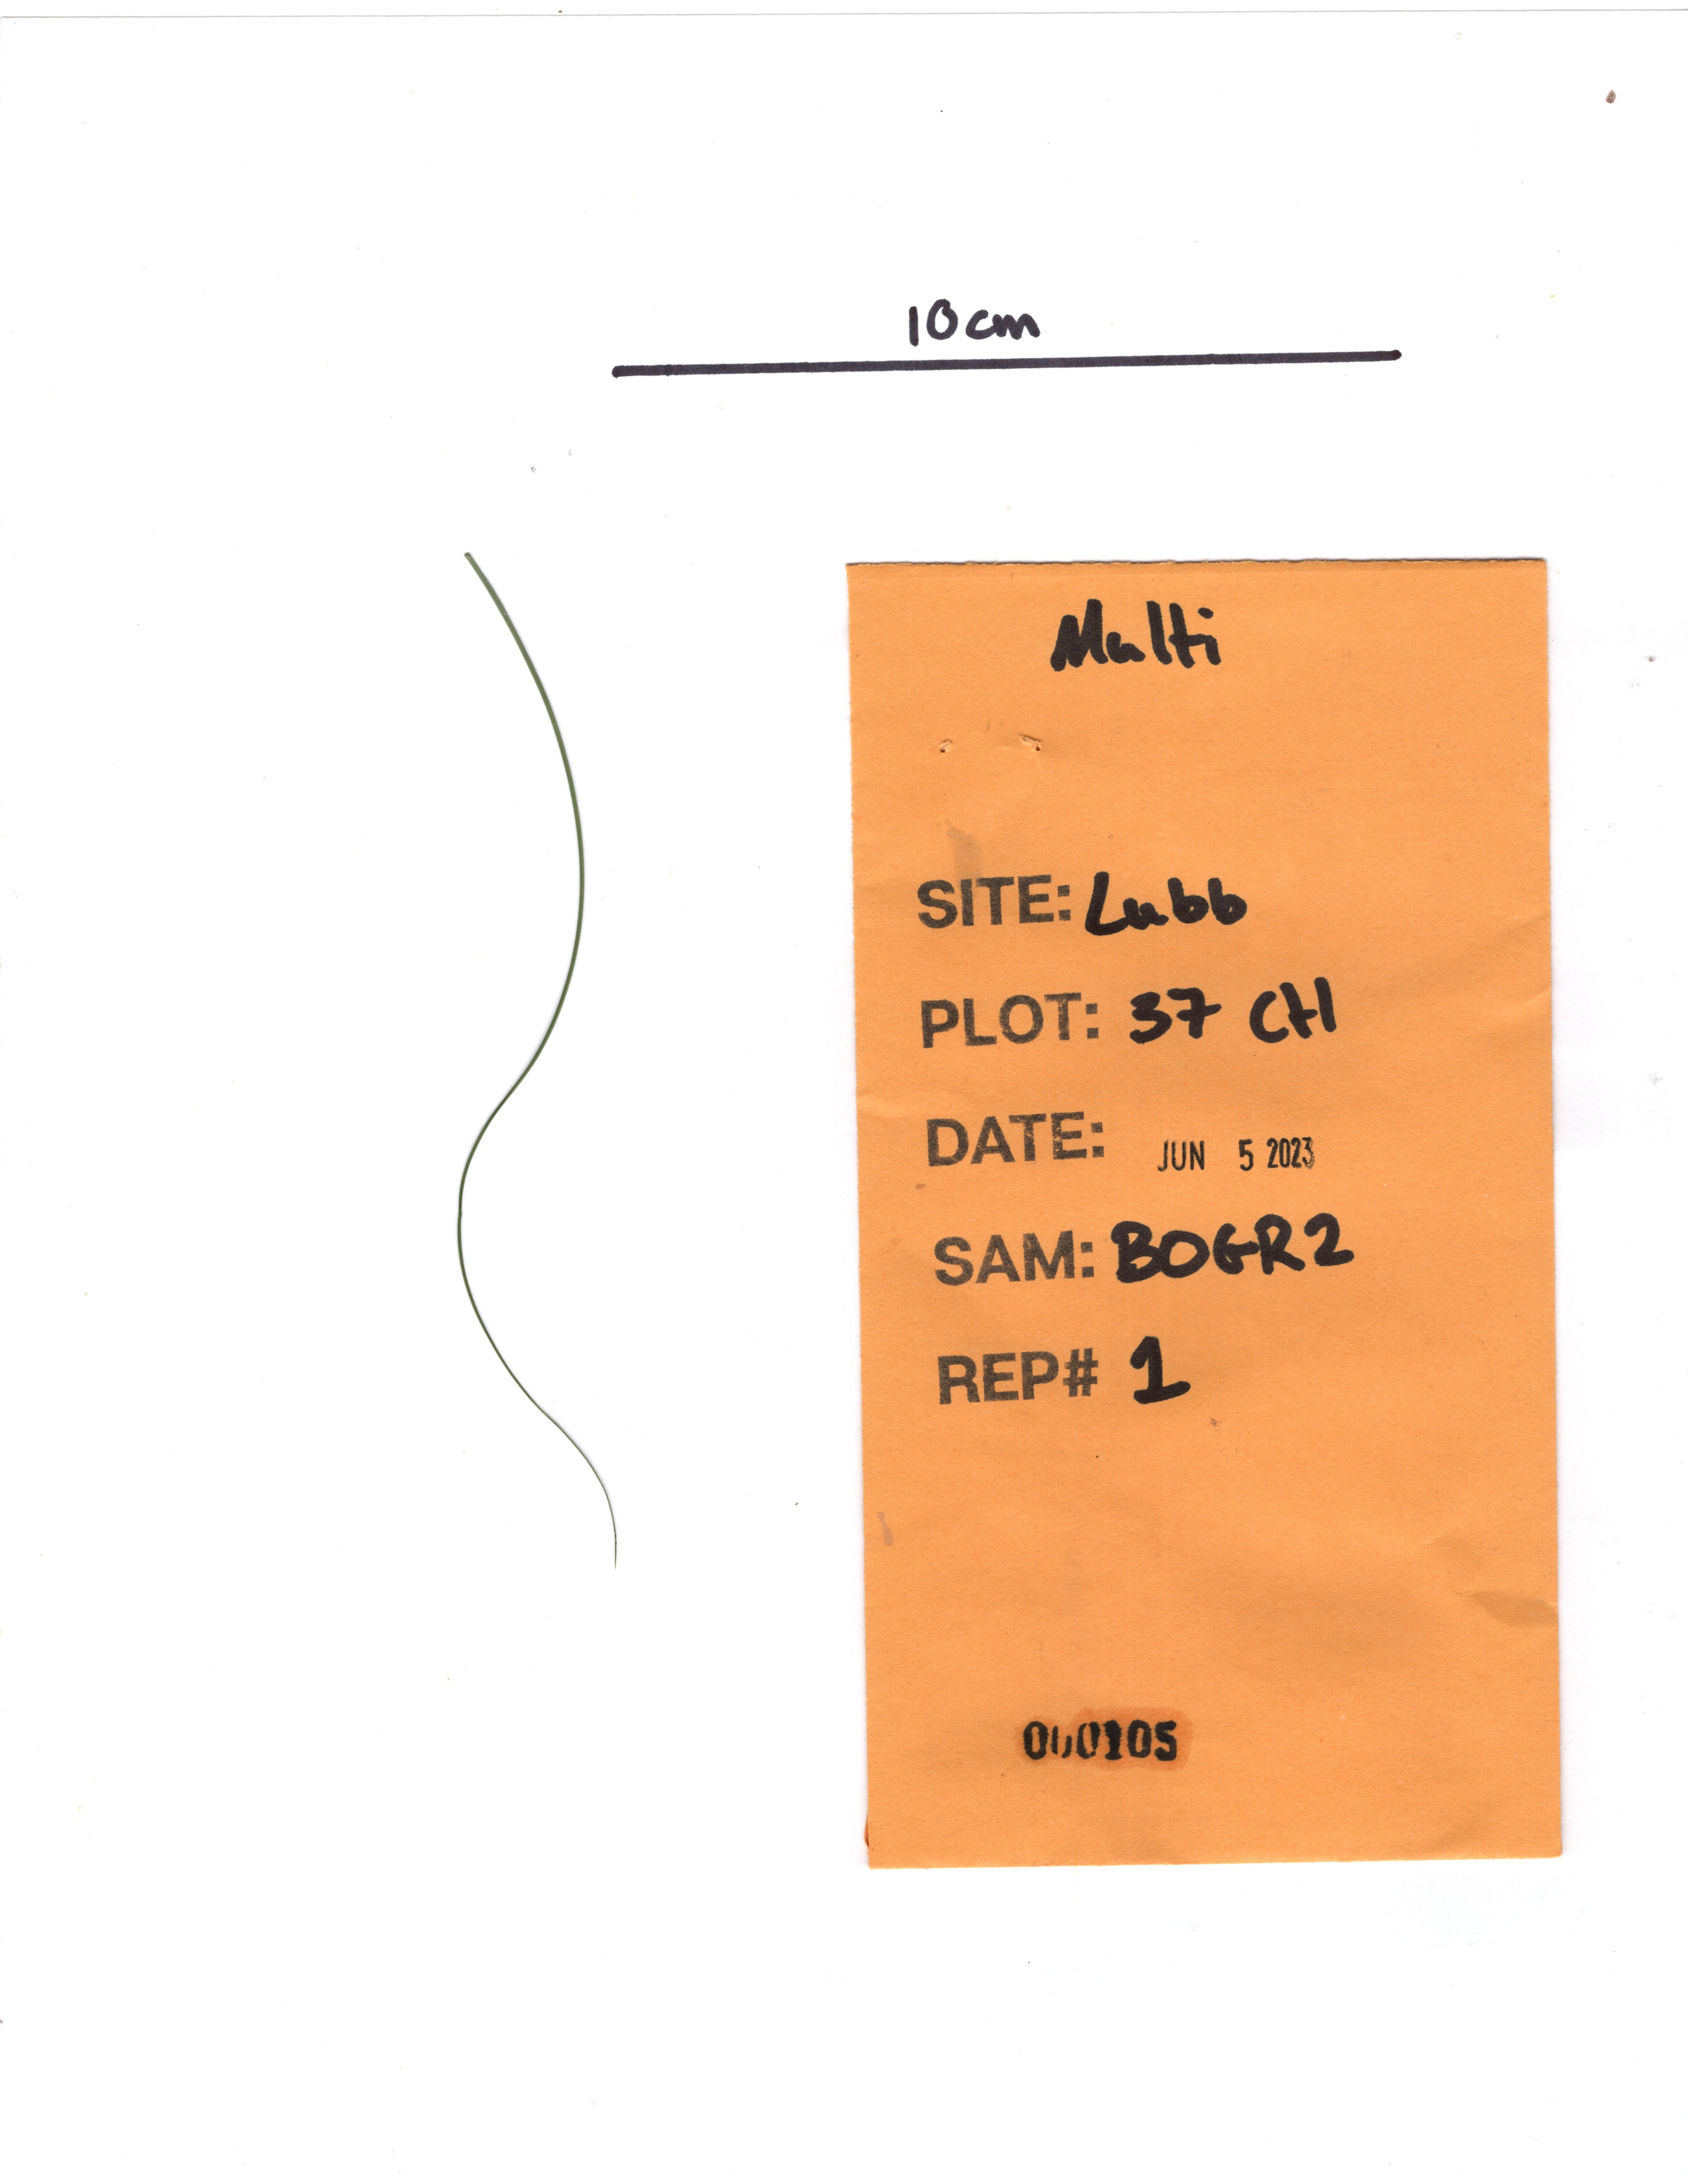 10cm
Multi
SITE: Lubb
PLOT: 37 CH
DATE: JUN 5 2023
SAM: BOGR2
REP# 1